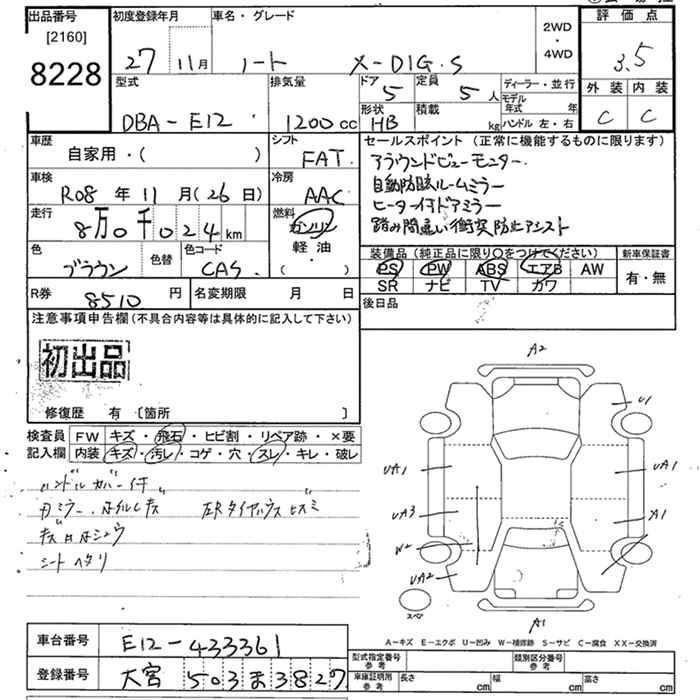 出品番号
[2160]
8228
初度登録年月
27 11月
車名・グレード
ノート X-DIG.S
2WD
・
4WD
評価点
3.5
外装 内装
C C
型式
DBA-E12
排気量
1200cc
ドア
5
定員
5人
形状
HB
積載
kg
ディーラー・並行
モデル年式 年
ハンドル 左・右
車歴
自家用・( )
シフト
FAT
セールスポイント (正常に機能するものに限ります)
アラウンドビューモニター
自動防眩ルームミラー
ヒーター付ドアミラー
踏み間違い衝突防止アシスト
車検
R08年11月(26日)
冷房
AAC
走行
8万0千024km
燃料
ガソリン
軽油
( ・ )
色
ブラウン
色替
色コード
CAS
装備品 (純正品に限り○をつけてください)
PS PW ABS エアB AW
SR ナビ TV カワ
新車保証書
有・無
R券
8510円
名変期限 月 日
後日品
注意事項申告欄(不具合内容等は具体的に記入して下さい)
初出品
修復歴 有 〔箇所 〕
検査員記入欄
FW キズ・飛石・ヒビ割・リペア跡・×要
内装 キズ・汚レ・コゲ・穴・スレ・キレ・破レ
ハンドルカバー付
シートヘタリ
A2
U1
UA1
UA1
UA3
A1
W2
UA2
A1
スペア
A-キズ E-エクボ U-凹み W-補修跡 S-サビ C-腐食 XX-交換済
車台番号
E12-433361
登録番号
大宮 503ま3827
型式指定番号
参考
類別区分番号
参考
車庫証明用
参考
長さ cm 幅 cm 高さ cm